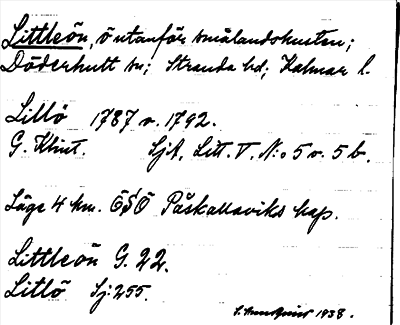 Littleön, ö utanför smålandskusten;
Döderhult sn; Stranda hd; Kalmar l.
Lillö 1787 o. 1792.
G. Klint. SjA, Litt. V. N:o 5 o. 5 b.
Läge 4 km. ÖSÖ Påskallaviks kap.
Littleön G. 22.
Litlö Sj: 255.
1938.